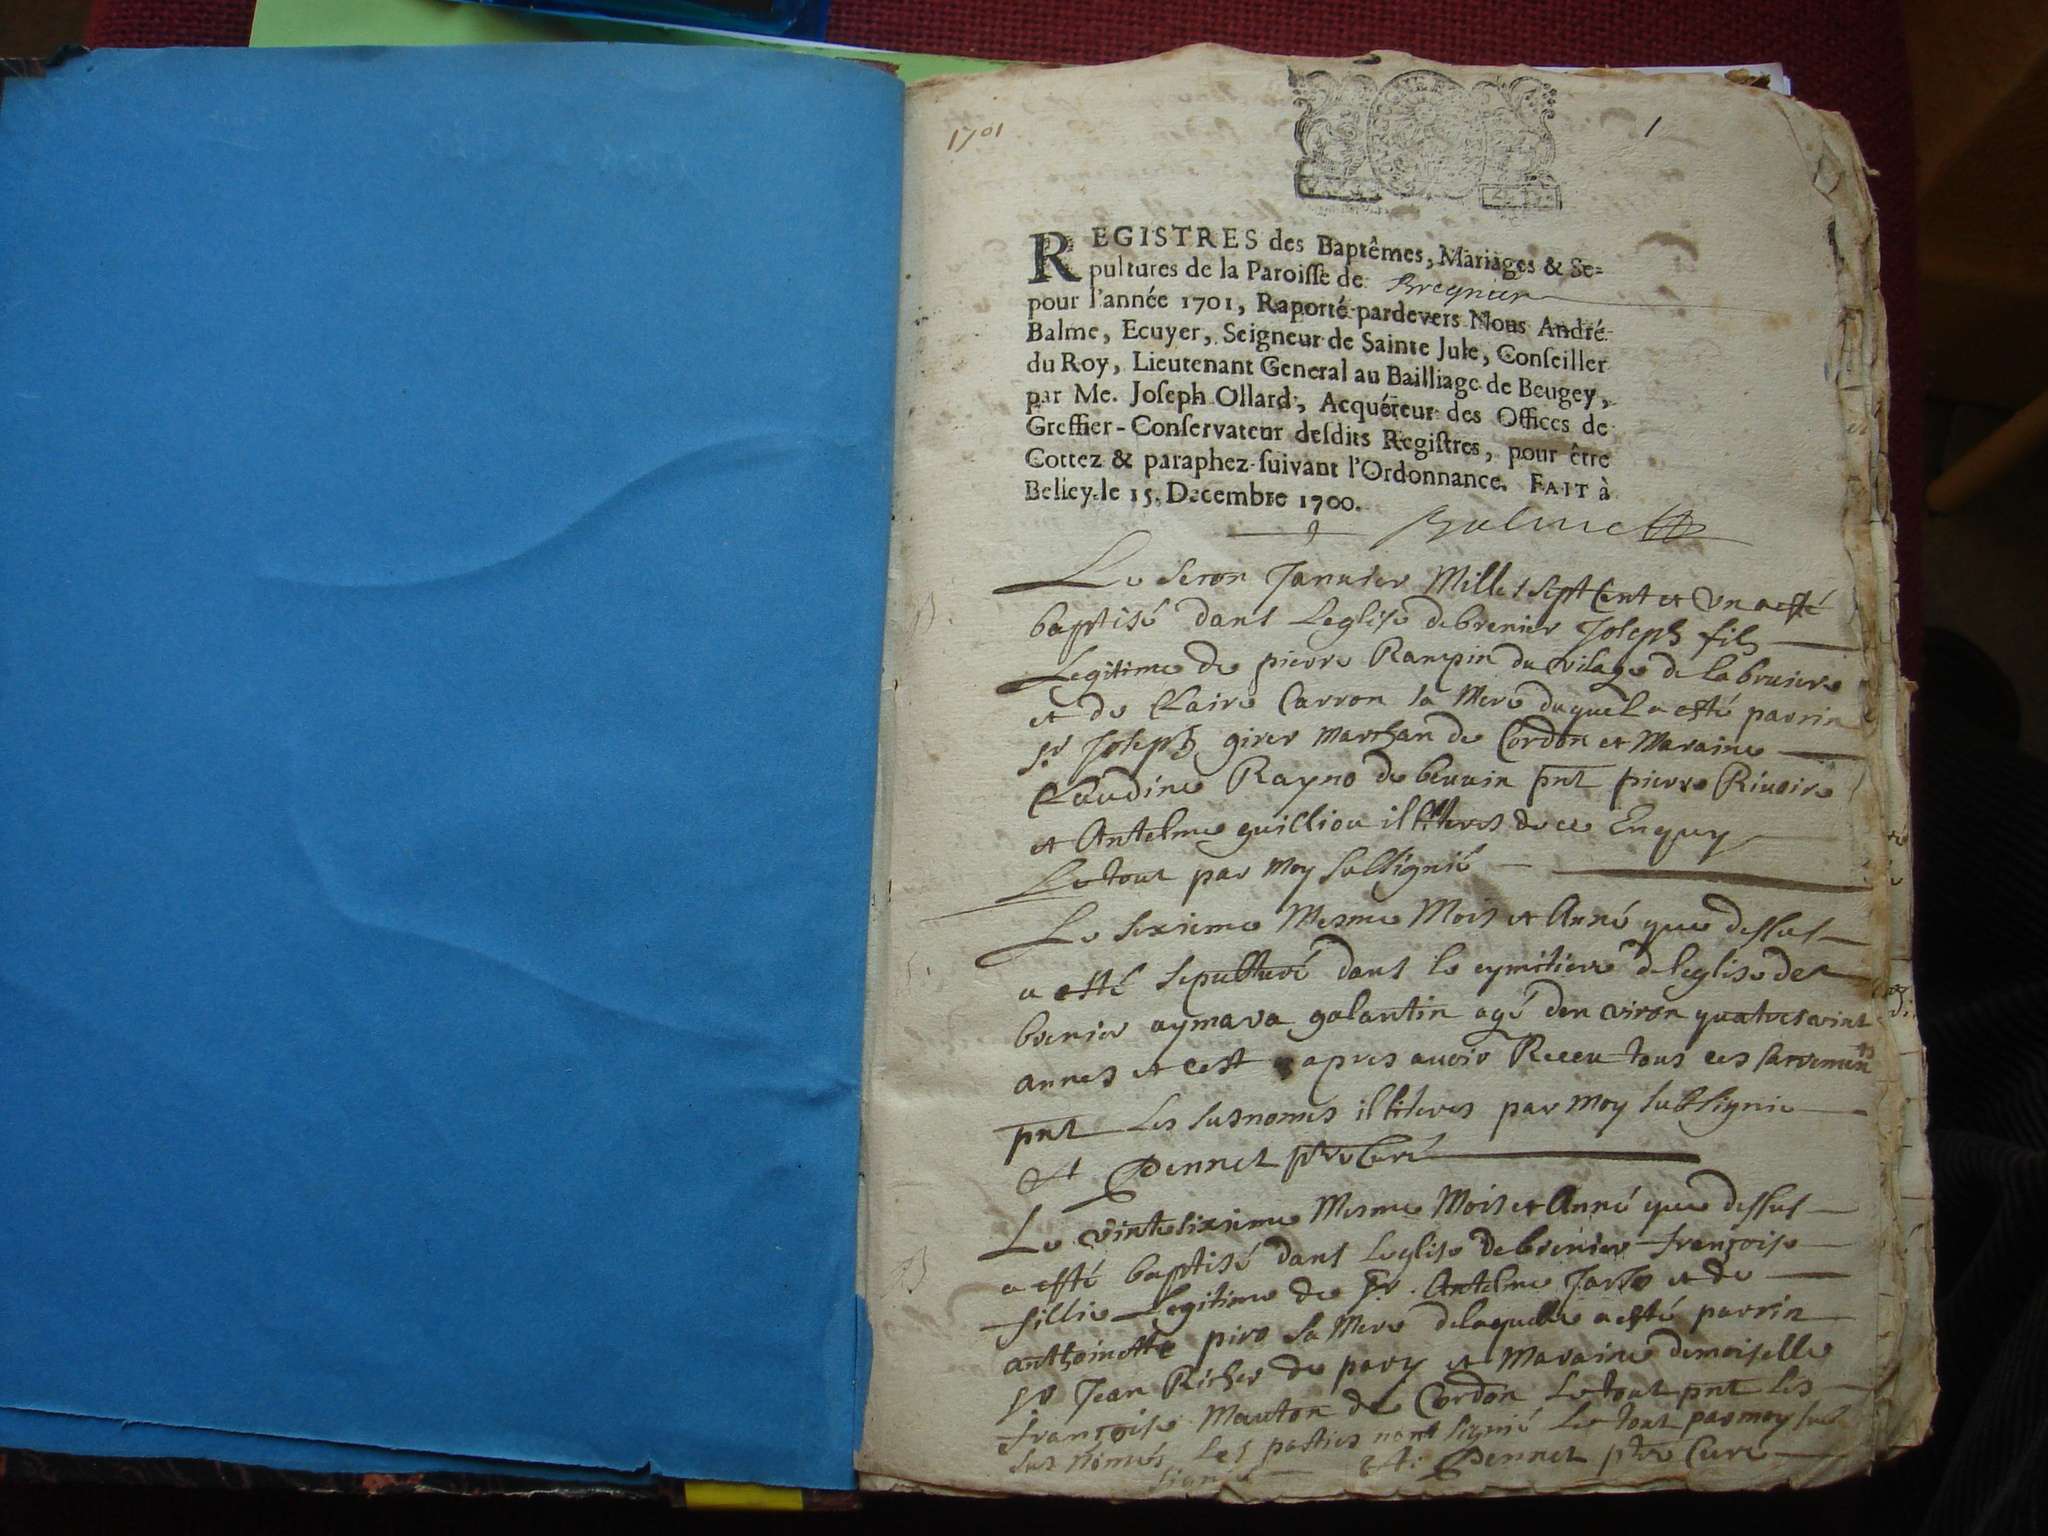 1701
1
REGISTRES des Baptêmes, Mariages & Se-
pultures de la Paroisse de Bregnier
pour l'année 1701, Raporté pardevers Nous André
Balme, Ecuyer, Seigneur de Sainte Jule, Conseiller
du Roy, Lieutenant General au Bailliage de Beugey,
par Me. Joseph Ollard, Acquéreur des Offices de
Greffier-Conservateur desdits Registres, pour être
Cottez & paraphez suivant l'Ordonnance. FAIT à
Belley le 15. Decembre 1700.
Balme
Le Janvier Mille sept Cent et Un a esté
baptisé dans Leglise de brenier Joseph fils
Legitime de pierre Rampin du vilage de la bruiere
et de Claire Carron sa Mere duquel a esté parrin
sr Joseph girer marchan de Cordon et Maraine
Claudine Rayno de pnt pierre Rivoire
et Antelme guilliou illiteres de ce Enquy
Le tout par moy subsignié
Le sixieme Mesme Mois et Anné que dessus
a esté sepulturé dans le cymitiere de leglise de
brenier aymara galantin agé denviron quatrevint
annes et cest apres avoir Receu tous ces sacremens
pnt Les susnomes illiteres par moy subsignie
Pennet ptre Curé
Le vintesixieme Mesme Mois et Anné que dessus
a esté baptisé dans Leglise de brenier françoise
fillie Legitime de sr Antelme et de
anthoinette piro sa Mere delaquelle a esté parrin
sr Jean Richer de pary et Maraine demoiselle
françoise Mauton de Cordon Le tout pnt les
sus només Les parties nont signié Le tout par moy sub
signié Pennet ptre Cure